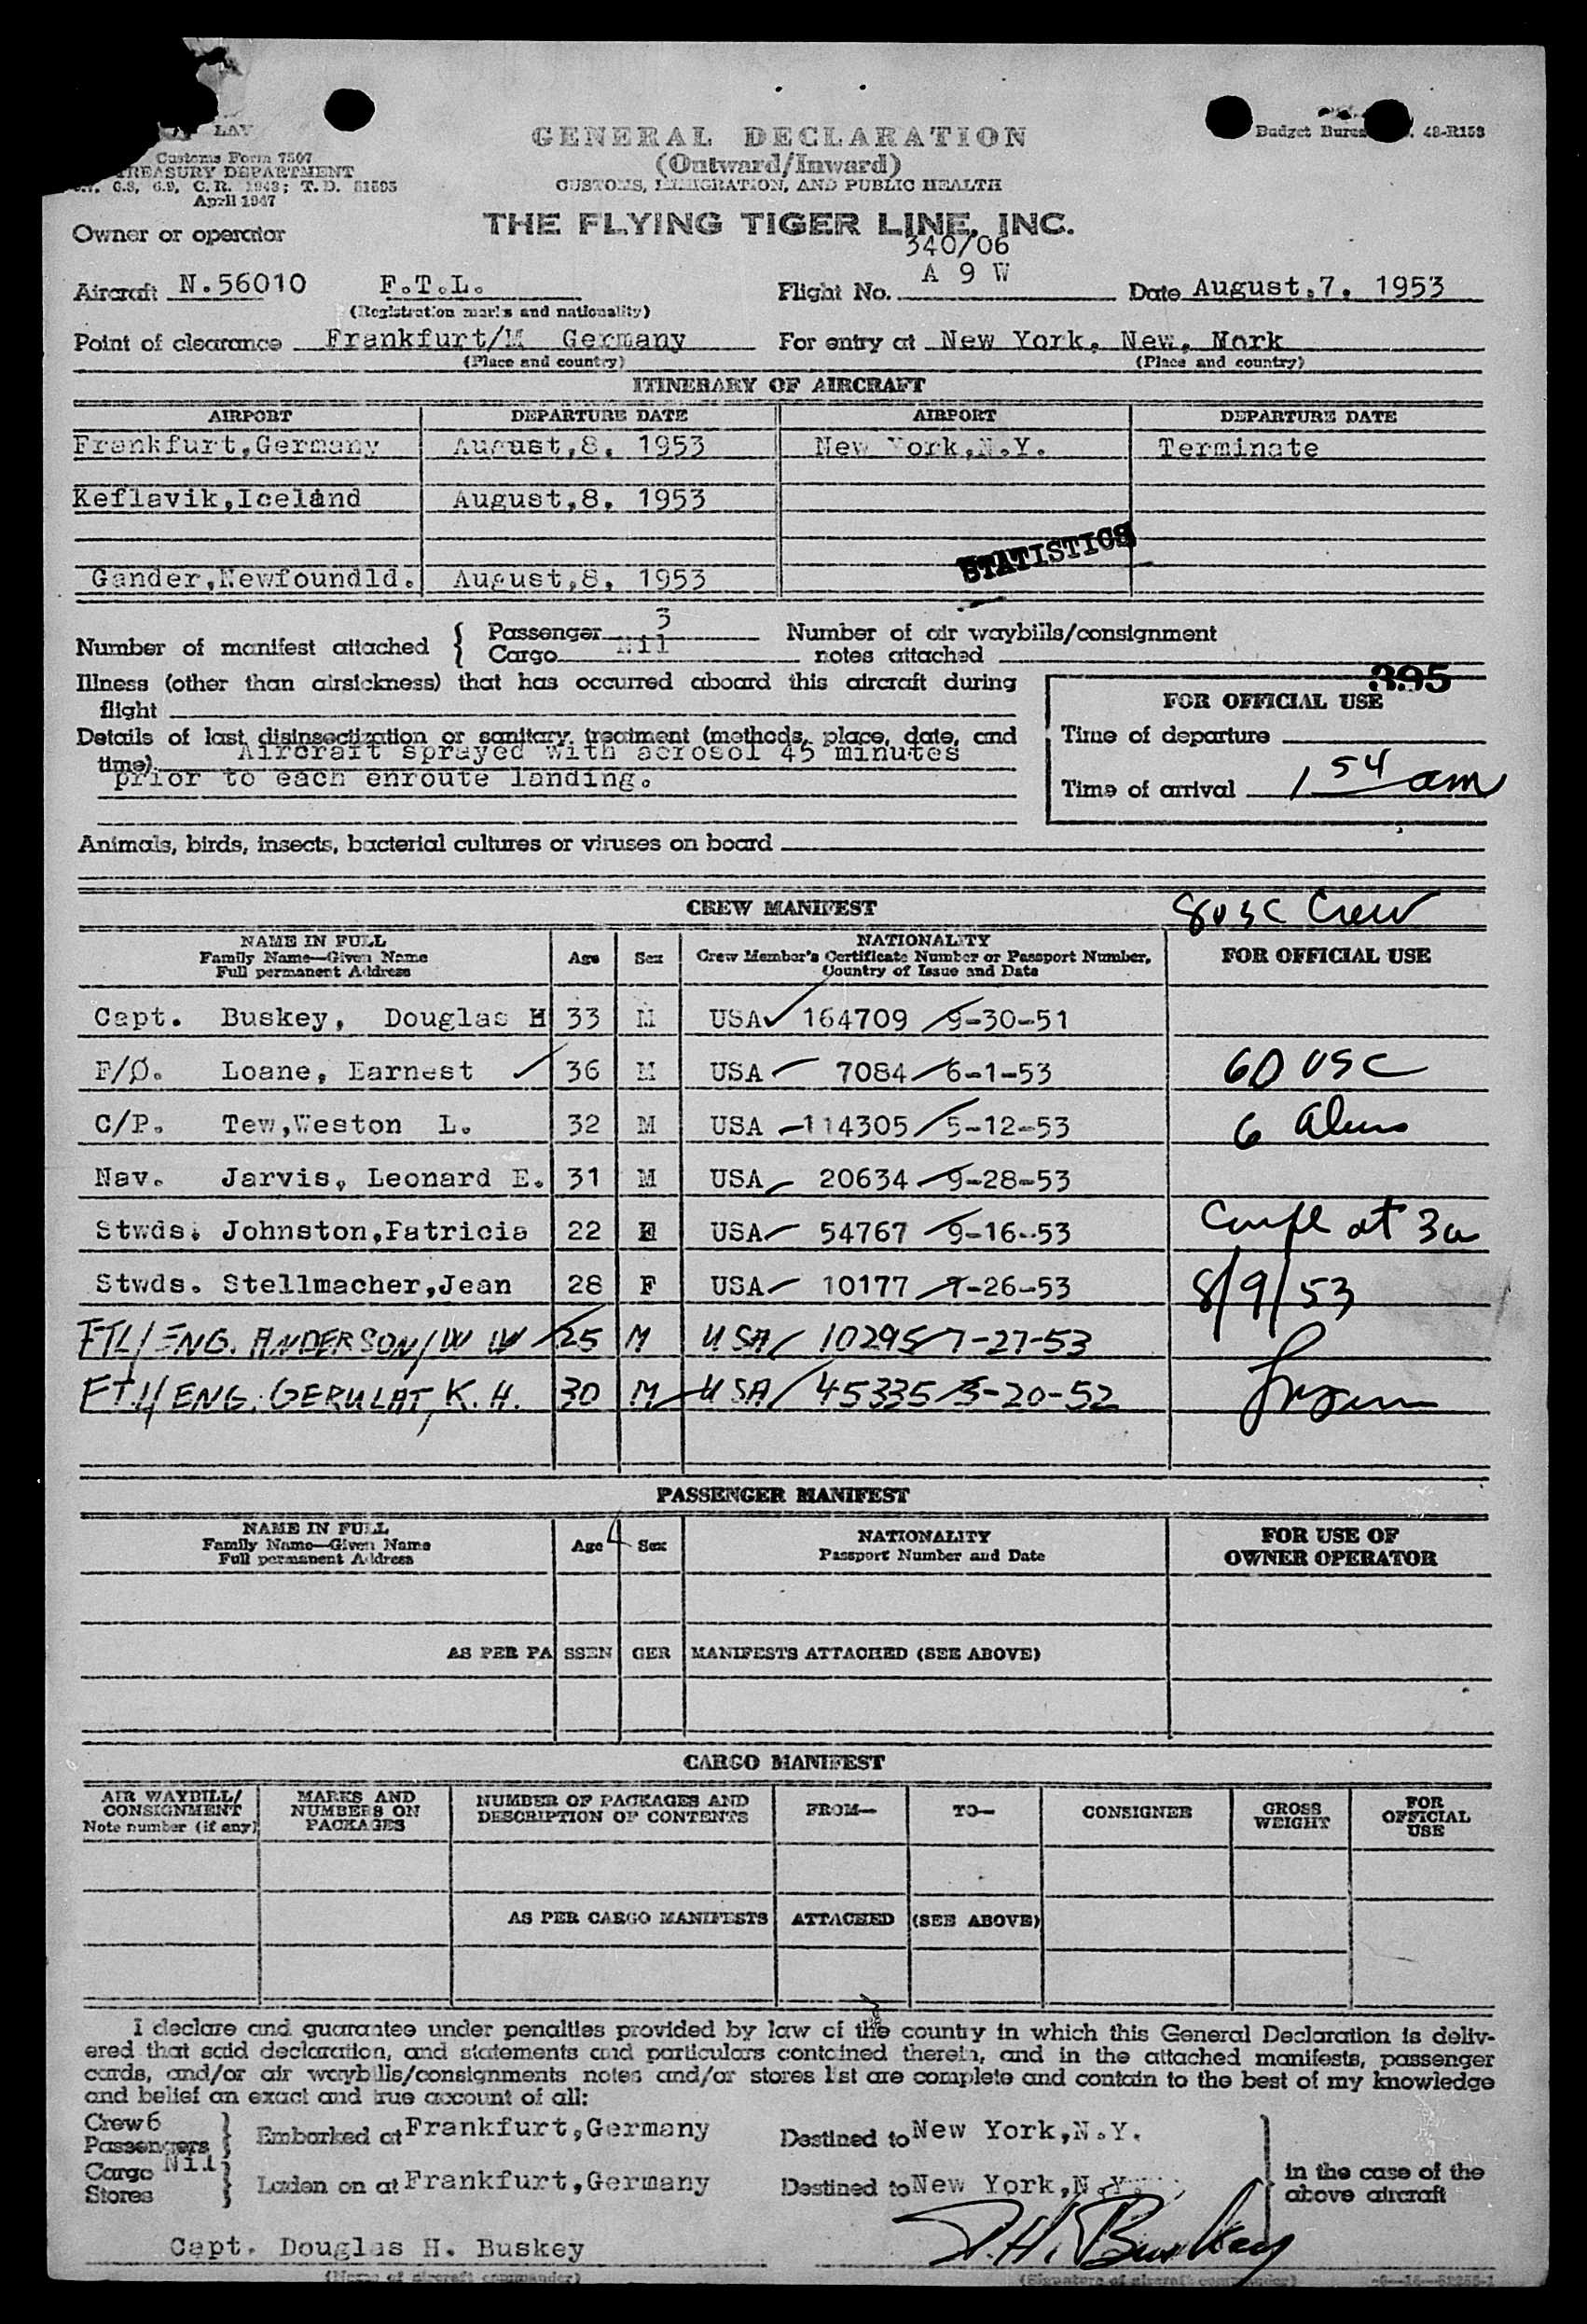 LAV
Customs Form 7507
TREASURY DEPARTMENT
6.8, 6.9, C. R. 1943; T. D. 51595
April 1947
GENERAL DECLARATION
(Outward/Inward)
CUSTOMS, IMMIGRATION, AND PUBLIC HEALTH
Budget Bureau 48-R153
THE FLYING TIGER LINE, INC.
Owner or operator
340/06
Aircraft N.56010 F.T.L. Flight No. A 9 W Date August,7, 1953
(Registration marks and nationality)
Point of clearance Frankfurt/M Germany For entry at New York, New, Nork
(Place and country) (Place and country)
ITINERARY OF AIRCRAFT
AIRPORT DEPARTURE DATE AIRPORT DEPARTURE DATE
Frankfurt,Germany August,8, 1953 New York,N.Y. Terminate
Keflavik,Iceland August,8, 1953
STATISTICS
Gander,Newfoundld. August,8, 1953
Number of manifest attached { Passenger 3 Number of air waybills/consignment
Cargo Nil notes attached
395
Illness (other than airsickness) that has occurred aboard this aircraft during
flight
FOR OFFICIAL USE
Details of last disinsectization or sanitary treatment (methods, place, date, and
time) Aircraft sprayed with aerosol 45 minutes
prior to each enroute landing.
Time of departure
Time of arrival 1 54 am
Animals, birds, insects, bacterial cultures or viruses on board
CREW MANIFEST
8 USC Crew
NAME IN FULL
Family Name—Given Name
Full permanent Address
Age Sex
NATIONALITY
Crew Member's Certificate Number or Passport Number,
Country of Issue and Date
FOR OFFICIAL USE
Capt. Buskey, Douglas H 33 M USA 164709 9-30-51
F/O. Loane, Earnest 36 M USA 7084 6-1-53 60 USC
C/P. Tew,Weston L. 32 M USA 114305 5-12-53 6 aliens
Nav. Jarvis, Leonard E. 31 M USA 20634 9-28-53
Stwds. Johnston,Patricia 22 F USA 54767 9-16-53 Compl at 3a
Stwds. Stellmacher,Jean 28 F USA 10177 7-26-53 8/9/53
FTL/ENG. ANDERSON/W W 25 M USA/ 10295/7-27-53
FTL/ENG. GERULAT, K. H. 30 M USA/ 45335/3-20-52
PASSENGER MANIFEST
NAME IN FULL
Family Name—Given Name
Full permanent Address
Age Sex
NATIONALITY
Passport Number and Date
FOR USE OF
OWNER OPERATOR
AS PER PASSENGER MANIFESTS ATTACHED (SEE ABOVE)
CARGO MANIFEST
AIR WAYBILL/
CONSIGNMENT
Note number (if any)
MARKS AND
NUMBERS ON
PACKAGES
NUMBER OF PACKAGES AND
DESCRIPTION OF CONTENTS
FROM— TO— CONSIGNEE
GROSS
WEIGHT
FOR
OFFICIAL
USE
AS PER CARGO MANIFESTS ATTACHED (SEE ABOVE)
I declare and guarantee under penalties provided by law of the country in which this General Declaration is deliv-
ered that said declaration, and statements and particulars contained therein, and in the attached manifests, passenger
cards, and/or air waybills/consignments notes and/or stores list are complete and contain to the best of my knowledge
and belief an exact and true account of all:
Crew 6
Passengers } Embarked at Frankfurt,Germany Destined to New York,N.Y.
Cargo Nil
Stores } Laden on at Frankfurt,Germany Destined to New York,N.Y.
in the case of the
above aircraft
Capt. Douglas H. Buskey D.H. Buskey
(Name of aircraft commander) (Signature of aircraft commander)